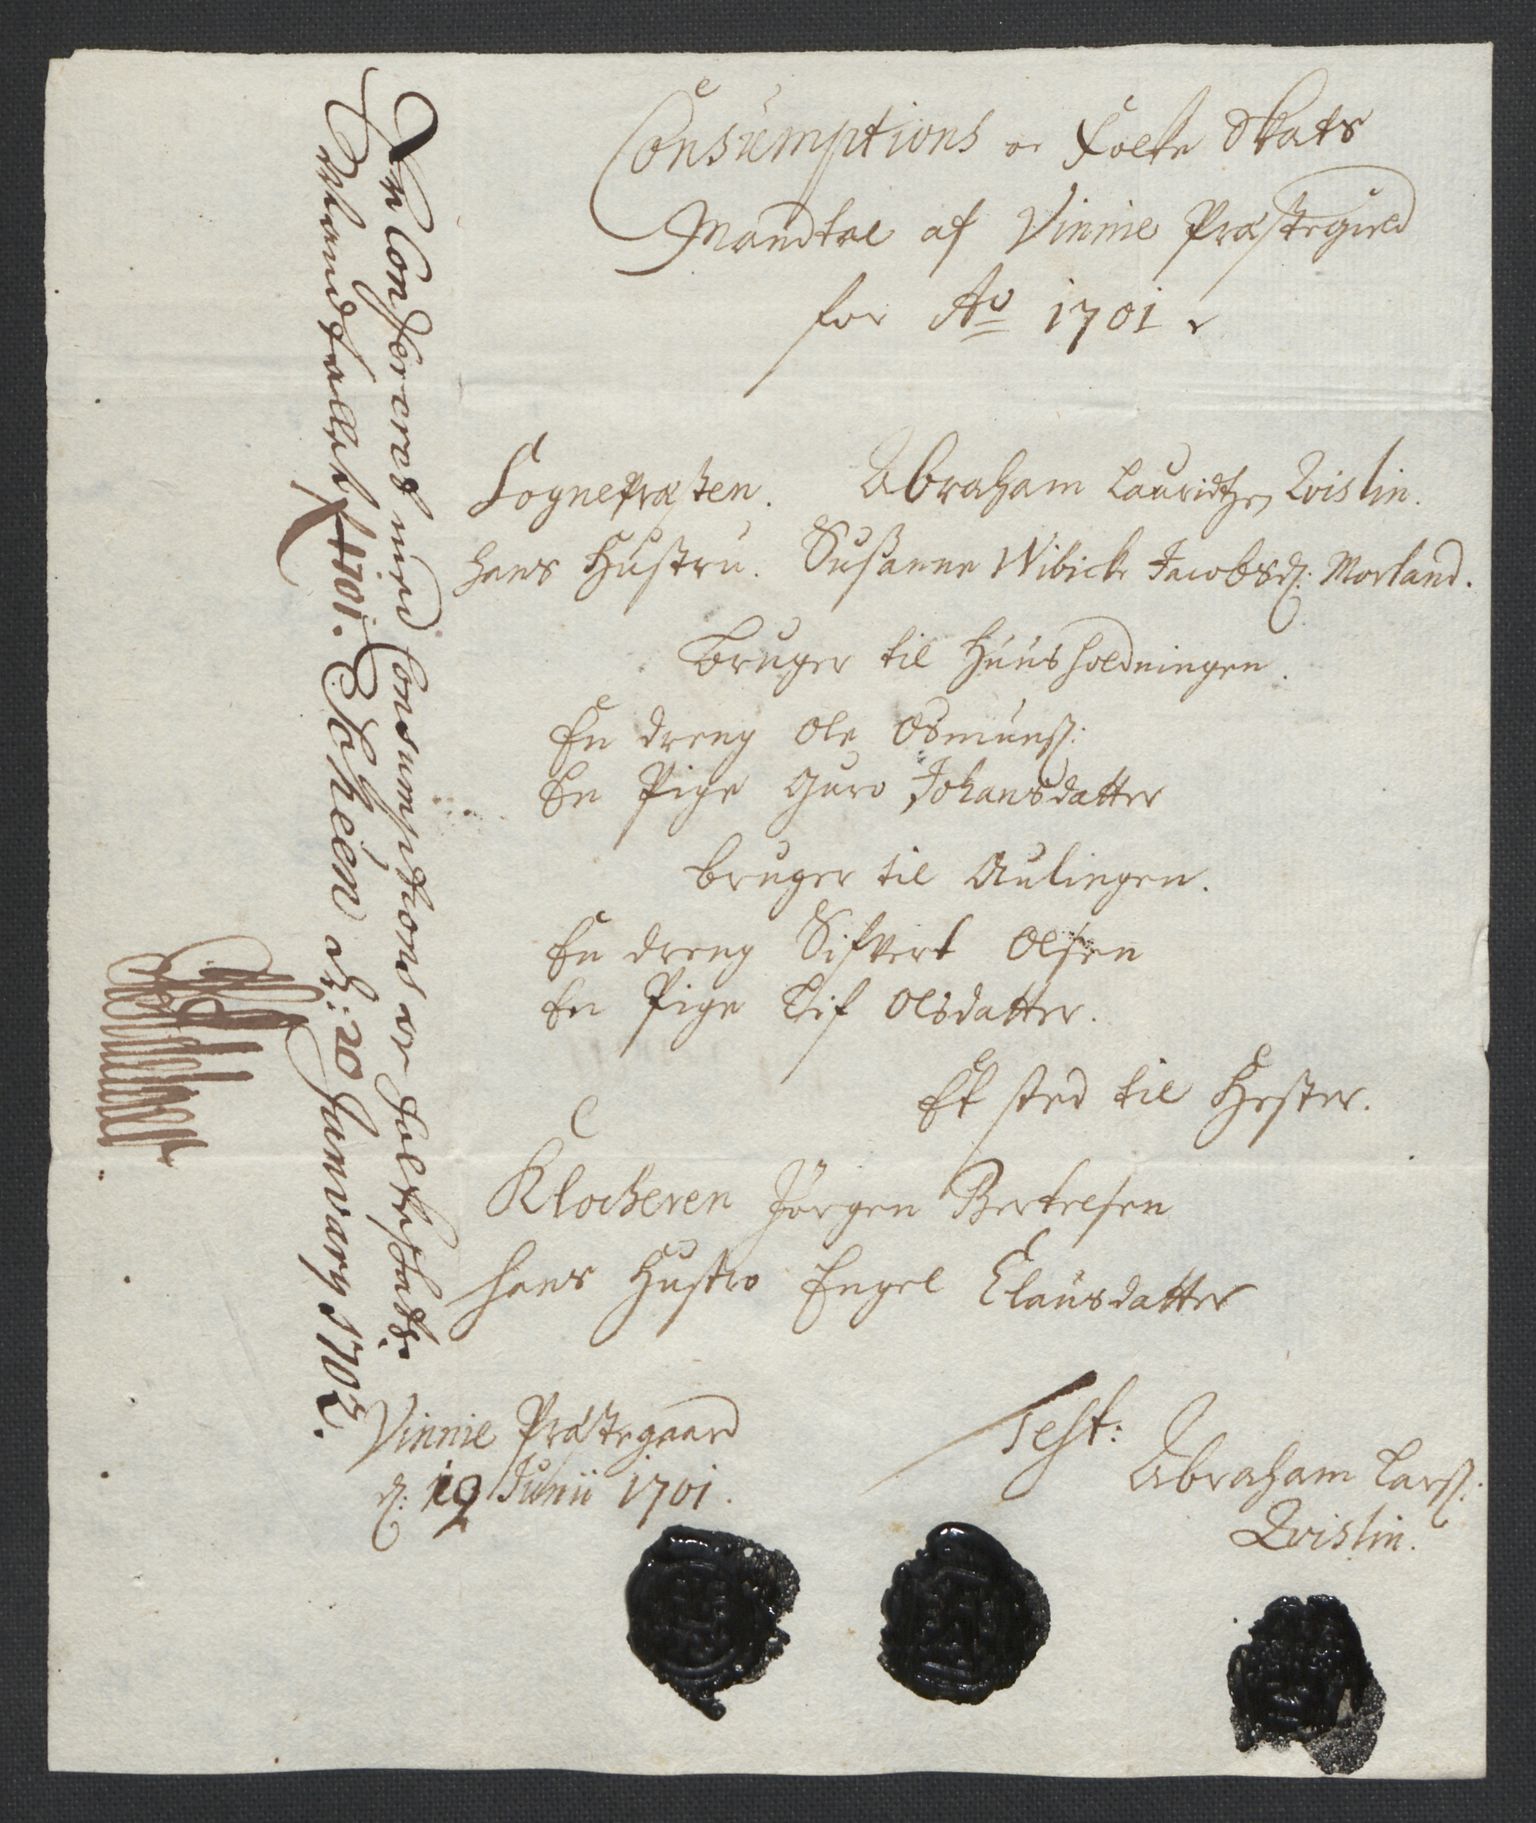 Consumptions oc Folke Skats
Mandtal af Vinnie Præstegield
for Ao 1701
Sognepræsten. Abraham Lauridtzen Qvislin.
hans Hustru. Sußanne Wibicke Jacobsd: Morland.
bruger til Huusholdningen.
En dreng Ole Osmunß:
En Pige Guro Johansdatter
bruger til Aulingen.
En dreng Sifvert Olsen
En Pige Lif Olsdatter.
Et sted til Hester.
Klocheren Jörgen Bertelsen
hans Hustro Engel Clausdatter
Vinnie Præstegaard
d: 19 Junii 1701.
Test:
Abraham Larß:
Qvislin.
Er Confereret med Consumptions oc folkeskats
Mandtallet 1701. Scheen d: 20 January 1702.